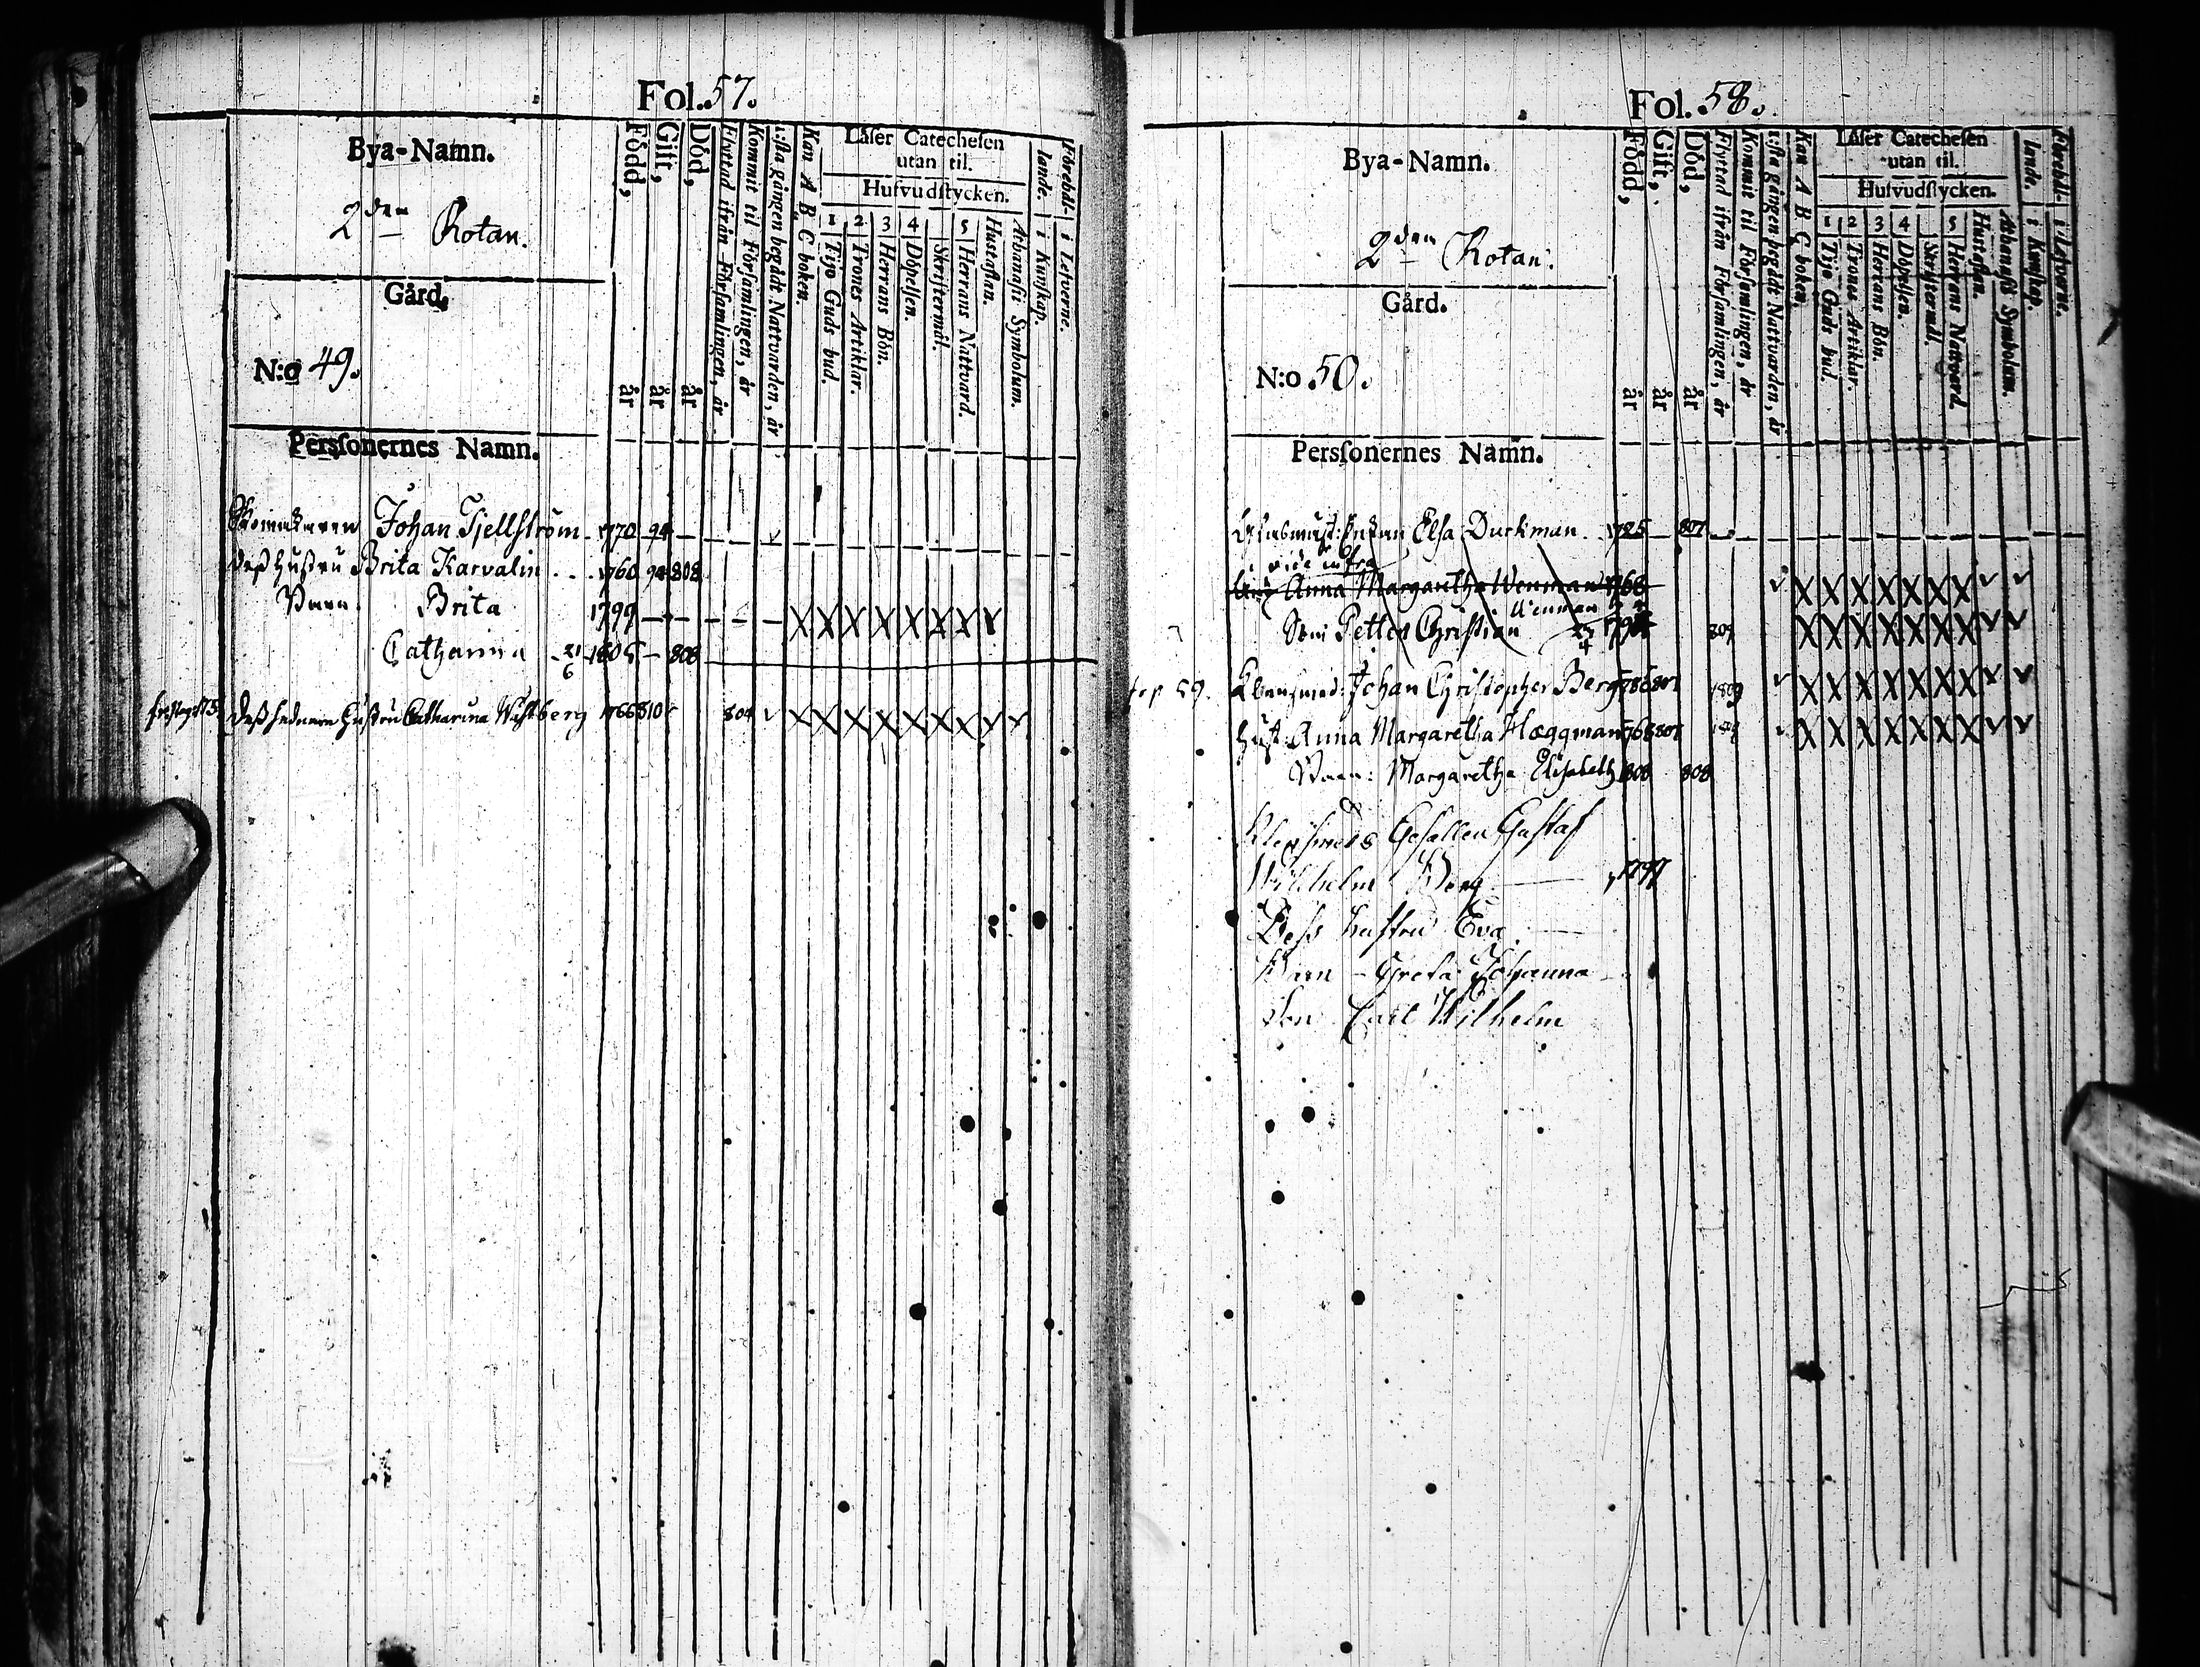 Fol. 57.
Bya-Namn.
2den Rotan.
Gård.
N:o 49.
Persſonernes Namn.
Född, år
Gift, år
Död, år
Flyttad ifrån Församlingen, år
Kommit til Församlingen, år
1:sta gången begådt Nattvarden, år
Kan A B C boken.
Låſer Catecheſen
utan til.
Hufvudſtycken.
1 2 3 4 5
Tijo Guds bud.
Trones Artiklar.
Herrans Bön.
Döpelſen.
Skriftermål.
Herrans Nattvard.
Huſtaflan.
Athanaſii Symbolum.
Förehål-
lande.
i Kunſkap.
i Lefverne.
Johan Tjellström 1770 94
Deß Hustru Brita Karvalin 1760 94 808
Barn Brita 1799
Catharina 21/6 1805 808
Deß Hustru Catharina Wastberg 1766 810 804
Fol. 58.
Bya-Namn.
2den Rotan.
Gård.
N:o 50.
Persſonernes Namn.
Född, år
Gift, år
Död, år
Flyttad ifrån Församlingen, år
Kommit til Församlingen, år
1:sta gången begådt Nattvarden, år
Kan A B C boken.
Låſer Catecheſen
utan til.
Hufvudſtycken.
1 2 3 4 5
Tijo Guds bud.
Trones Artiklar.
Herrans Bön.
Döpelſen.
Skriftermål.
Herrans Nattvard.
Huſtaflan.
Athanaſii Symbolum.
Förehål-
lande.
i Kunſkap.
i Lefverne.
Enkan Elsa Durkman 1725 807
vide infra
Anna Margaretha Wenman 1768
Wenman
Son Petter Christian 809
Johan Christopher Berg 786 807 1809
Hust: Anna Margaretha Hæggman 768 807
Barn: Margaretha Elisabeth 808 808
Klensmeds Gesellen Gustaf
Wilhelm Berg
Dess hustru Eva
Barn - Greta Johanna
Son Carl Wilhelm